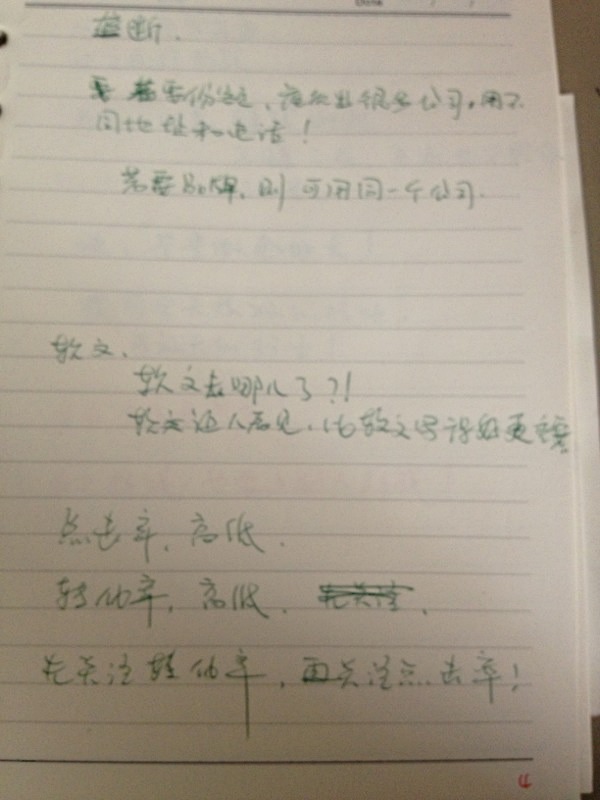 Date / /
垄断.
若要份额、出很多公司，用不
同地址和电话！
若要品牌，则可用同一个公司.
软文、
软文去哪儿了？！
软文让人看见，比软文写得好更重要
点击率，高低.
转化率，高低. 先关注.
先关注转化率，再关注点击率！
4